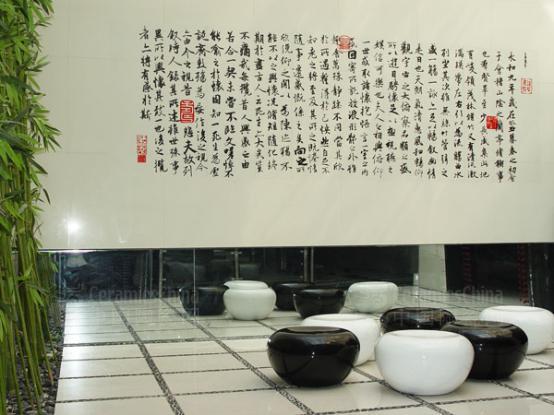 永和九年歲在癸丑暮春之初會
于會稽山陰之蘭亭脩稧事
也羣賢畢至少長咸集此地
有崇領茂林脩竹又有清流激
湍暎帶左右引以為流觴曲水
列坐其次雖無絲竹管弦之
盛一觴一詠亦足以暢敘幽情
是日也天朗氣清惠風和暢仰
觀宇宙之大俯察品類之盛
所以遊目騁懷足以極視聽之
娛信可樂也夫人之相與俯仰
一世或取諸懷抱悟言一室之內
或因寄所託放浪形骸之外雖
趣舍萬殊靜躁不同當其欣
於所遇暫得於己怏然自足不
知老之將至及其所之既惓情
隨事遷感慨係之矣向之所
欣俛仰之閒以為陳迹猶不
能不以之興懷況脩短隨化終
期於盡古人云死生亦大矣豈
不痛哉每攬昔人興感之由
若合一契未嘗不臨文嗟悼不
能喻之於懷固知一死生為虛
誕齊彭殤為妄作後之視今
亦由今之視昔悲夫故列
敘時人錄其所述雖世殊事
異所以興懷其致一也後之攬
者亦將有感於斯
CeramicsChina